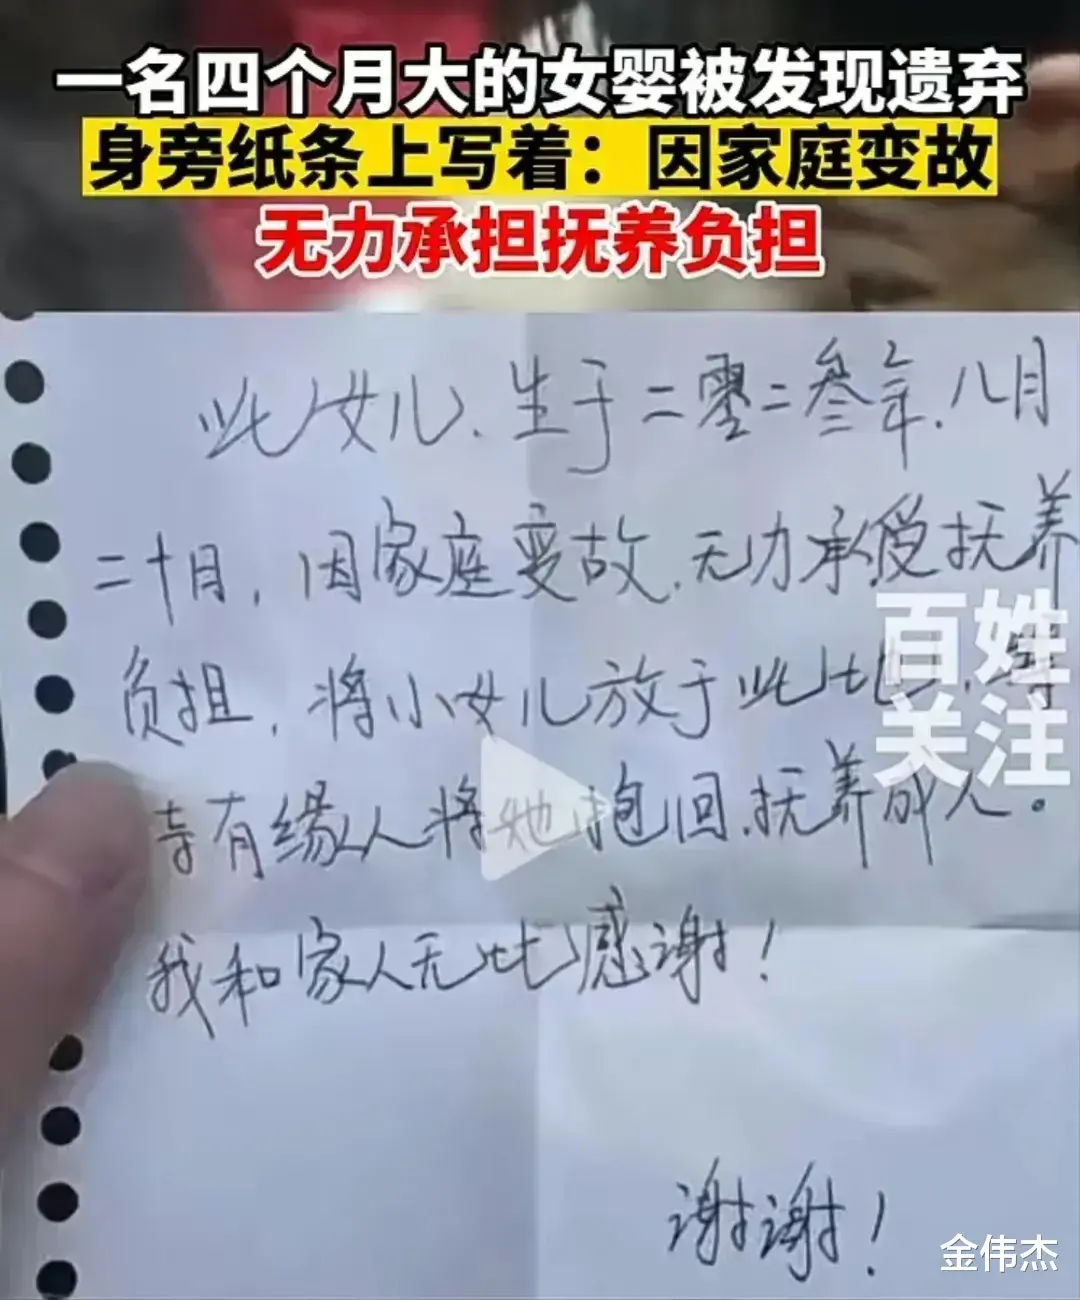 一名四个月大的女婴被发现遗弃
身旁纸条上写着：因家庭变故
无力承担抚养负担
此女儿、生于二零二叁年.八月
二十月，因家座变故.无力承受抚养
负担，将小女儿放于此地，
有缘人将她抱回.抚养成人。
我和家人无比感谢！
谢谢！
百姓
关注
金伟杰